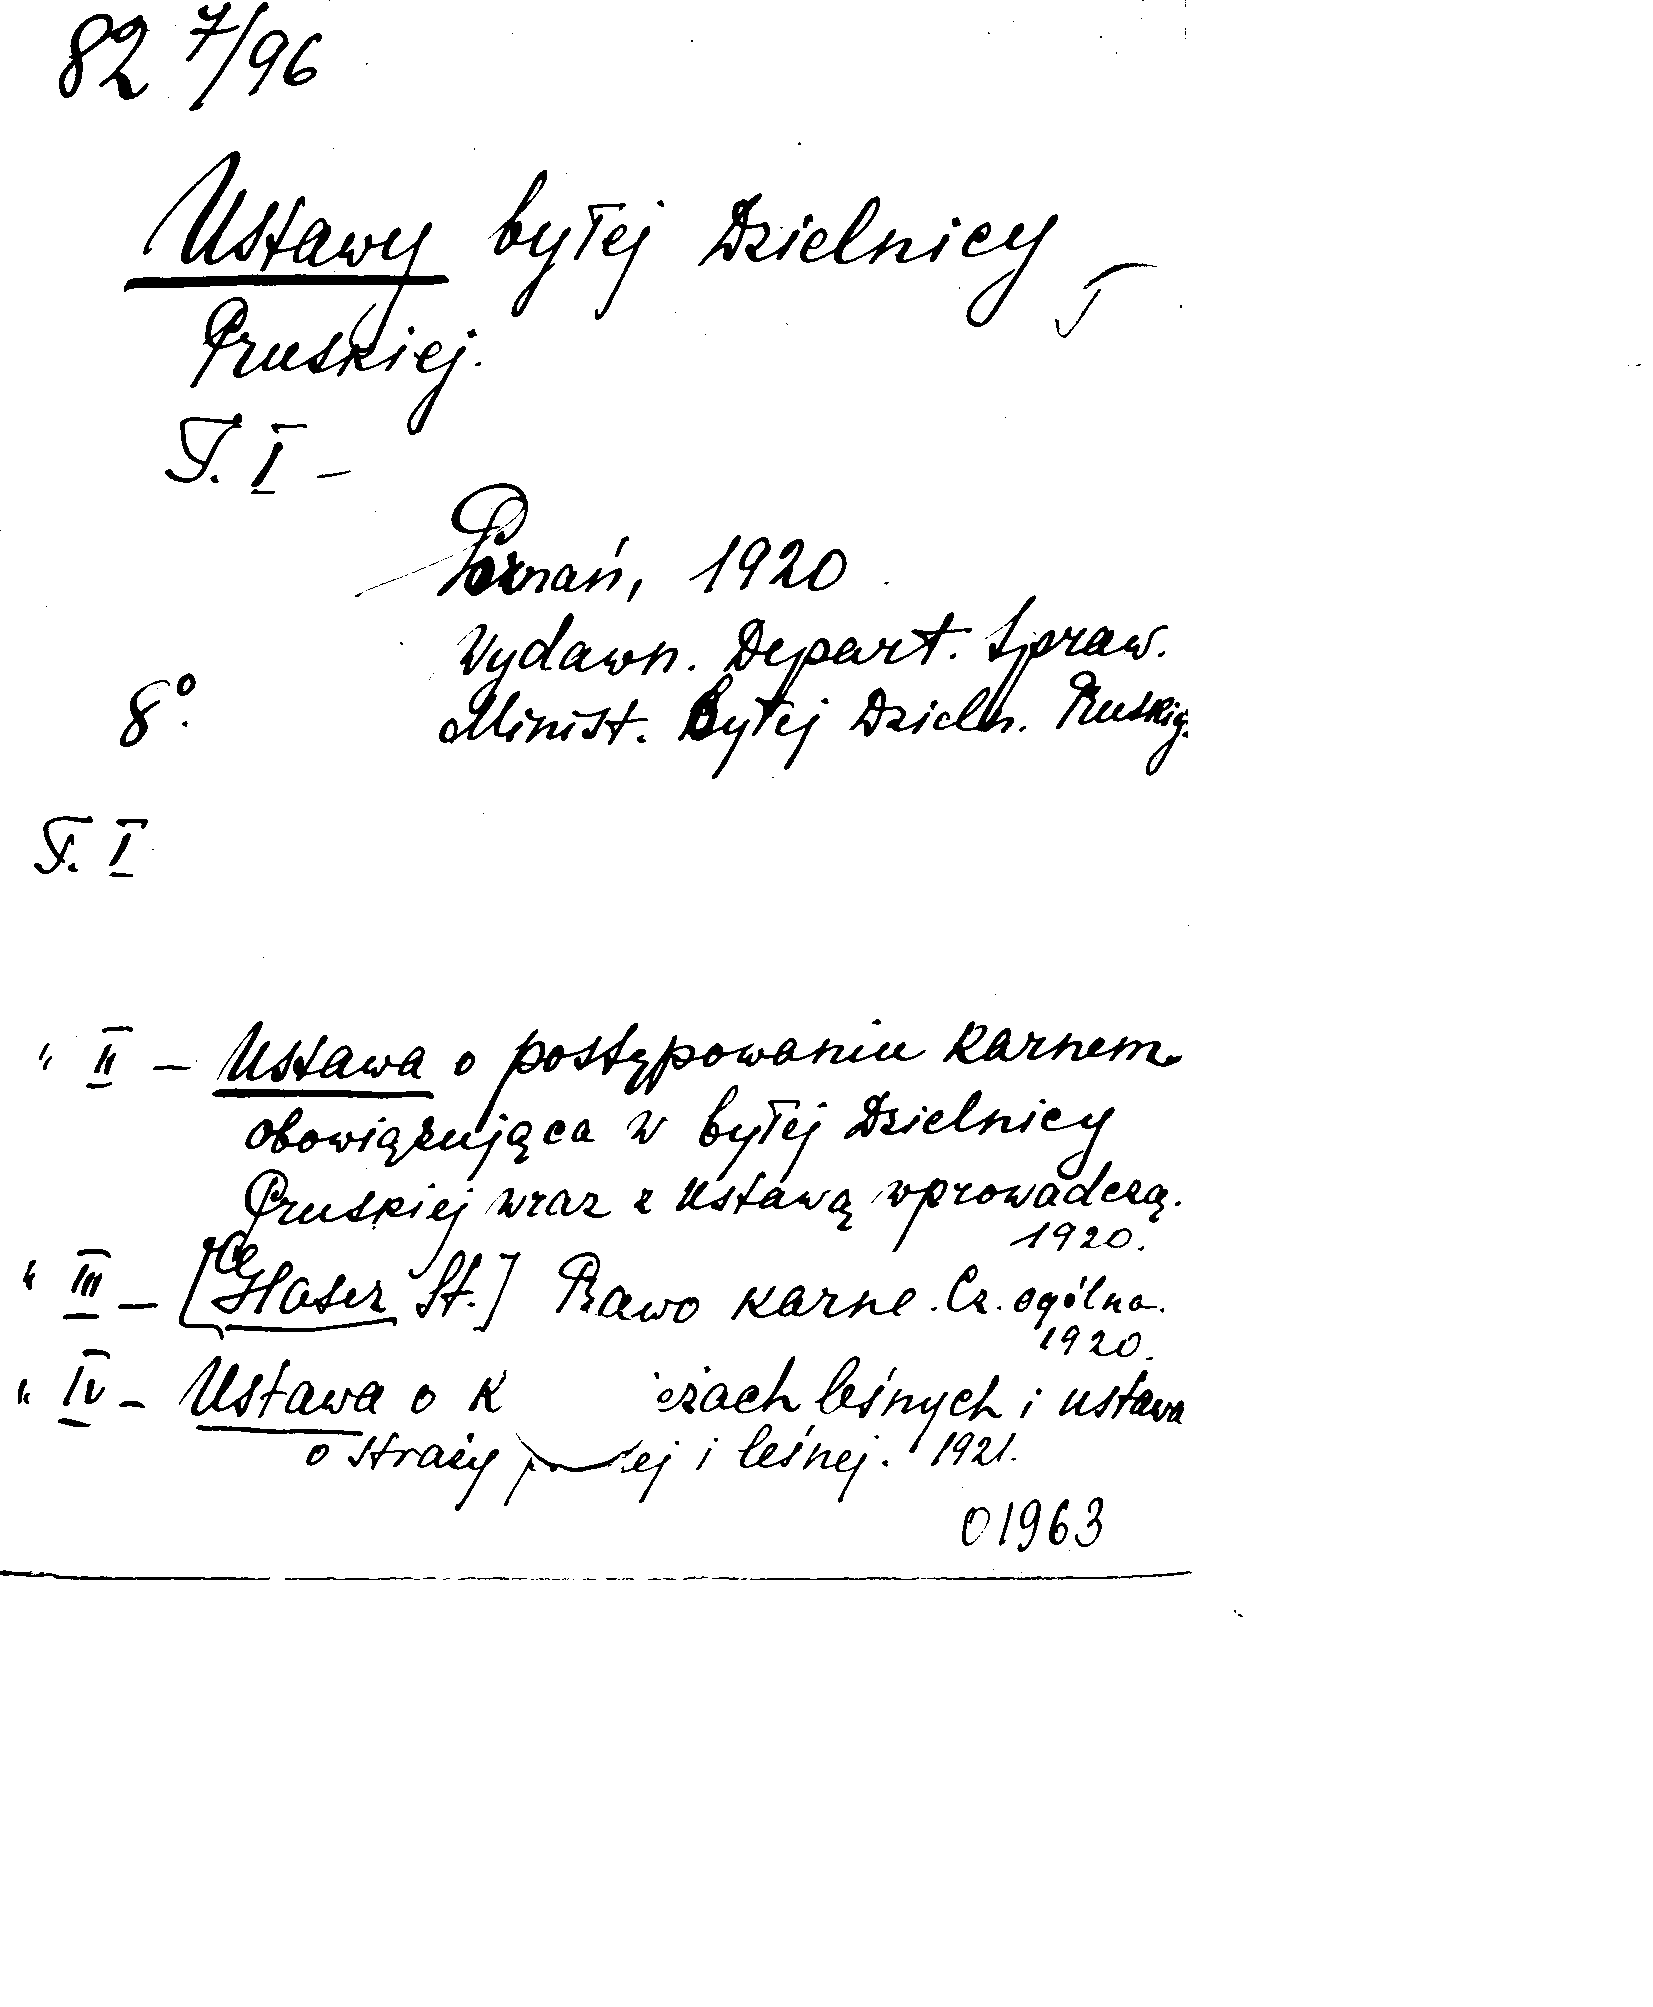 82 7/96
Ustawy byłej Dzielnicy
Pruskiej.
T. I –
Poznań, 1920
Wydawn. Depart. Spraw.
8°. Minist. Byłej Dzieln. Pruskiej.
T. I
" II – Ustawa o postępowaniu karnem.
obowiązująca w byłej Dzielnicy
Pruskiej wraz z ustawą wprowadczą.
1920.
" III – [Glaser St.] Prawo karne. Cz. ogólna.
1920.
" IV – Ustawa o k ieżach leśnych i ustawa
o straży ej i leśnej. 1921.
01963